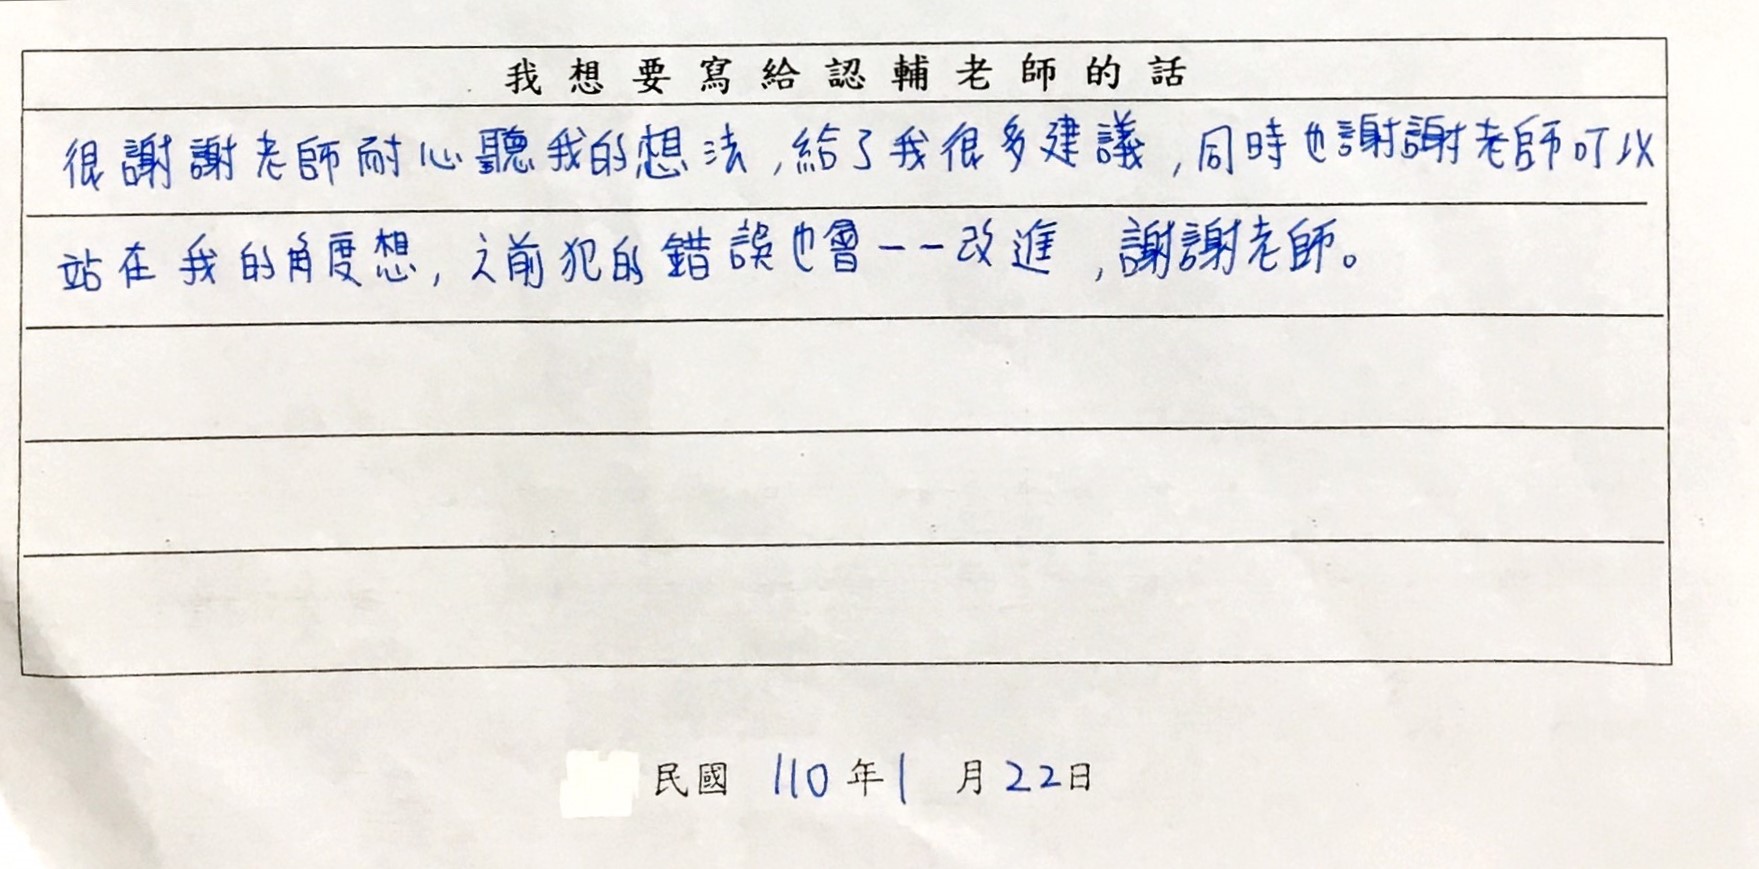 我想要寫給認輔老師的話
很謝謝老師耐心聽我的想法,給了我很多建議,同時也謝謝老師可以
站在我的角度想,之前犯的錯誤也會一一改進,謝謝老師。
民國 110 年 1 月 22 日